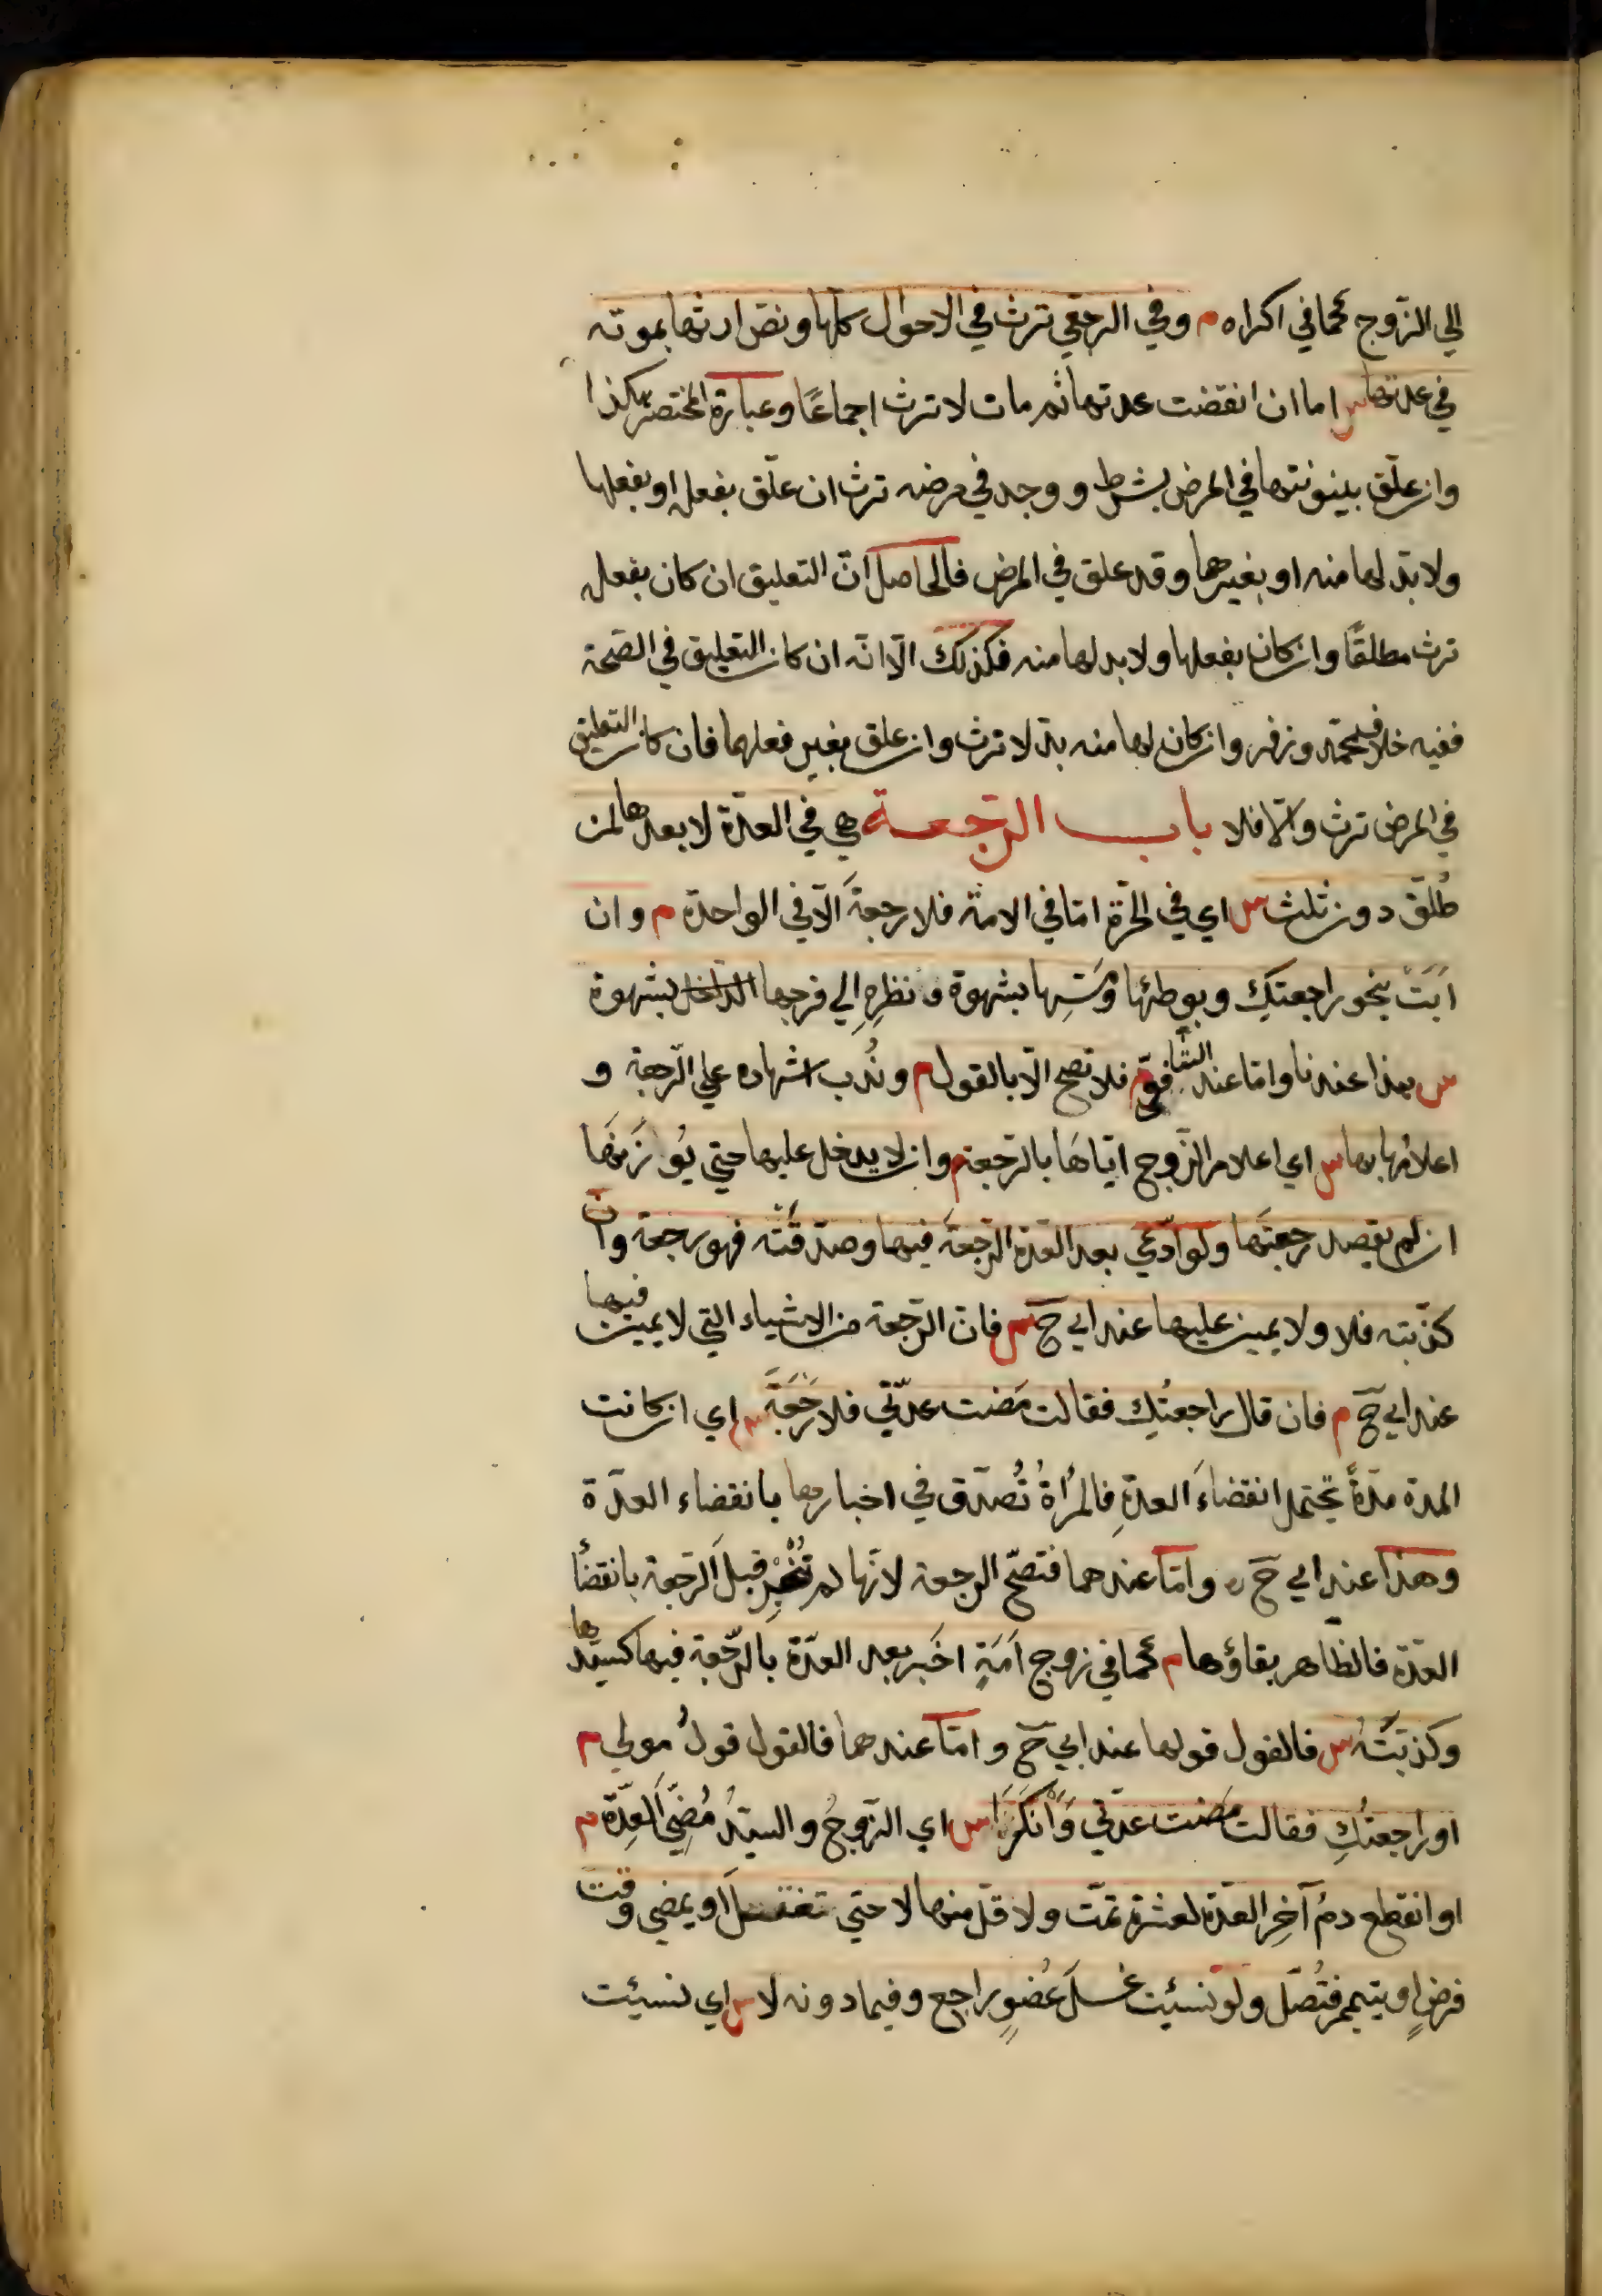 الي الزوج كما في اكراه م وفي الرجعي ترث في الاحوال كلها ونص ارثها بموته
في عدتها س اما ان انقضت عدتها ثم مات لا ترث اجماعًا وعبارة المختصر هكذا
وان علّق بينونتها في المرض بشرط ووجد في مرضه ترث ان علّق بفعله او بفعلها
ولا بدّ لها منه او بغيرهما وقد علق في المرض فالحاصل انّ التعليق ان كان بفعله
ترث مطلقًا وان كان بفعلها ولا بد لها منه فكذلك الّا انّه ان كان التعليق في الصّحة
ففيه خلاف محمّد وزفر وان كان لها منه بدّ لا ترث وان علق بغير فعلهما فان كان التعليق
في المرض ترث والّا فلا باب الرّجعة هي في العدّة لا بعدها لمن
طُلّق دون ثلث س اي في الحرّة امّا في الامة فلا رجعةَ الّا في الواحدة م وان
ابَتْ بنحو راجعتكِ وبوطئها ومَسِّها بشهوة ونظرِهِ الي فرجها الداخل بشهوة
س هذا عندنا وامّا عند الشافعيّ فلا تصح الّا بالقول م ونُدب اشهاده علي الرّجعة و
اعلامُها بها س اي اعلام الزّوج ايّاهَا بالرّجعة م وان لا يدخل عليها حتي يُوْذِنَهَا
ان لم يقصد رجعتَها ولو ادّعي بعد العدّة الرّجعةَ فيها وصدّقَتْه فهو رجعة وان
كذّبته فلا ولا يمين عليها عند ابي حَ س فان الرّجعة من الاشياء التي لا يمين فيها
عند ابي حَ م فان قال راجعتُكِ فقالت مَضت عدّتي فلا رَجْعَةَ س اي ان كانت
المدة مدّةً تحتمل انقضاءَ العدّةِ فالمرأةُ تُصدّق في اخبارها بانقضاء العدّة
وهذا عند ابي حَ ره وامّا عندهما فتصحّ الرجعة لانّها لم تُخْبِرْ قبلَ الرّجعة بانقضاء
العدّة فالظاهر بقاؤها م كما في زوج اَمَةٍ اخبر بعد العدّة بالرّجعة فيها لسيّدها
وكذبَتْهُ س فالقول قولها عند ابي حَ وامّا عندهما فالقول قولُ مولي م
او راجعتُكِ فقالت مَضت عدّتي وَاَنْكَرَا س اي الزّوجُ والسيّدُ مُضِيَّ العِدّة م
او انقطع دمُ آخِرِ العدّة لعشرة تمّت ولاقلّ منها لا حتي تغتسلَ او يمضي وقت
فرضٍ او تتيمم فتُصلّ ولو نسيَت غسلَ عُضوٍ راجع وفيما دونه لا س اي نسيَت